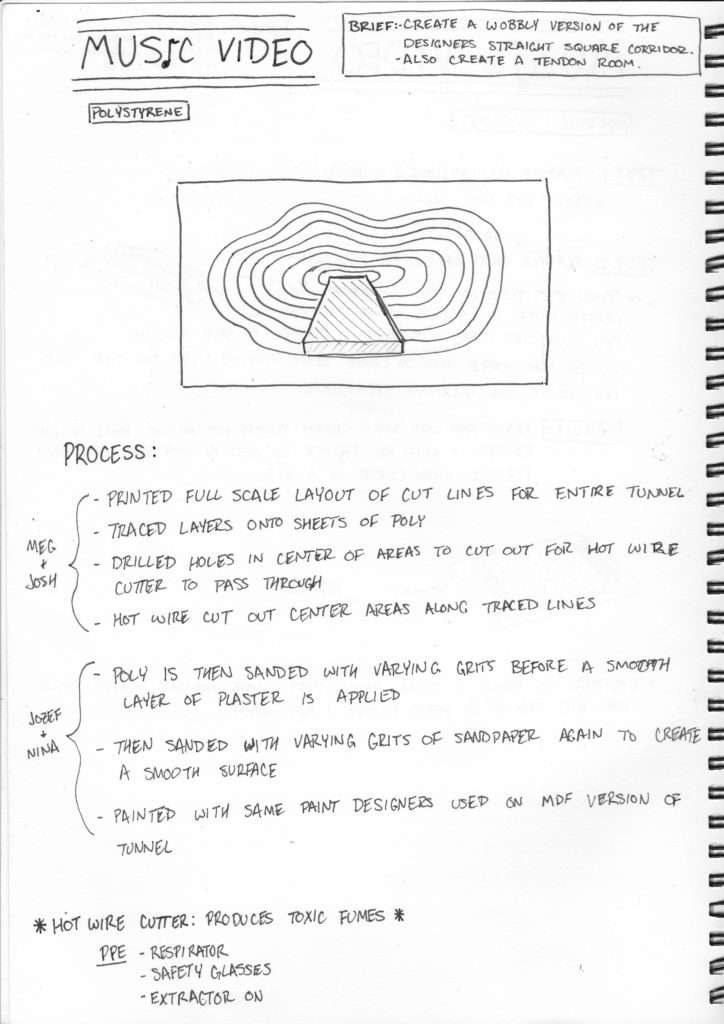 MUSIC VIDEO
BRIEF:- CREATE A WOBBLY VERSION OF THE
DESIGNERS STRAIGHT SQUARE CORRIDOR.
- ALSO CREATE A TENDON ROOM.
POLYSTYRENE
PROCESS:
MEG
+
JOSH
- PRINTED FULL SCALE LAYOUT OF CUT LINES FOR ENTIRE TUNNEL
- TRACED LAYERS ONTO SHEETS OF POLY
- DRILLED HOLES IN CENTER OF AREAS TO CUT OUT FOR HOT WIRE
CUTTER TO PASS THROUGH
- HOT WIRE CUT OUT CENTER AREAS ALONG TRACED LINES
JOZEF
+
NINA
- POLY IS THEN SANDED WITH VARYING GRITS BEFORE A SMOOTH
LAYER OF PLASTER IS APPLIED
- THEN SANDED WITH VARYING GRITS OF SANDPAPER AGAIN TO CREATE
A SMOOTH SURFACE
- PAINTED WITH SAME PAINT DESIGNERS USED ON MDF VERSION OF
TUNNEL
* HOT WIRE CUTTER: PRODUCES TOXIC FUMES *
PPE - RESPIRATOR
- SAFETY GLASSES
- EXTRACTOR ON